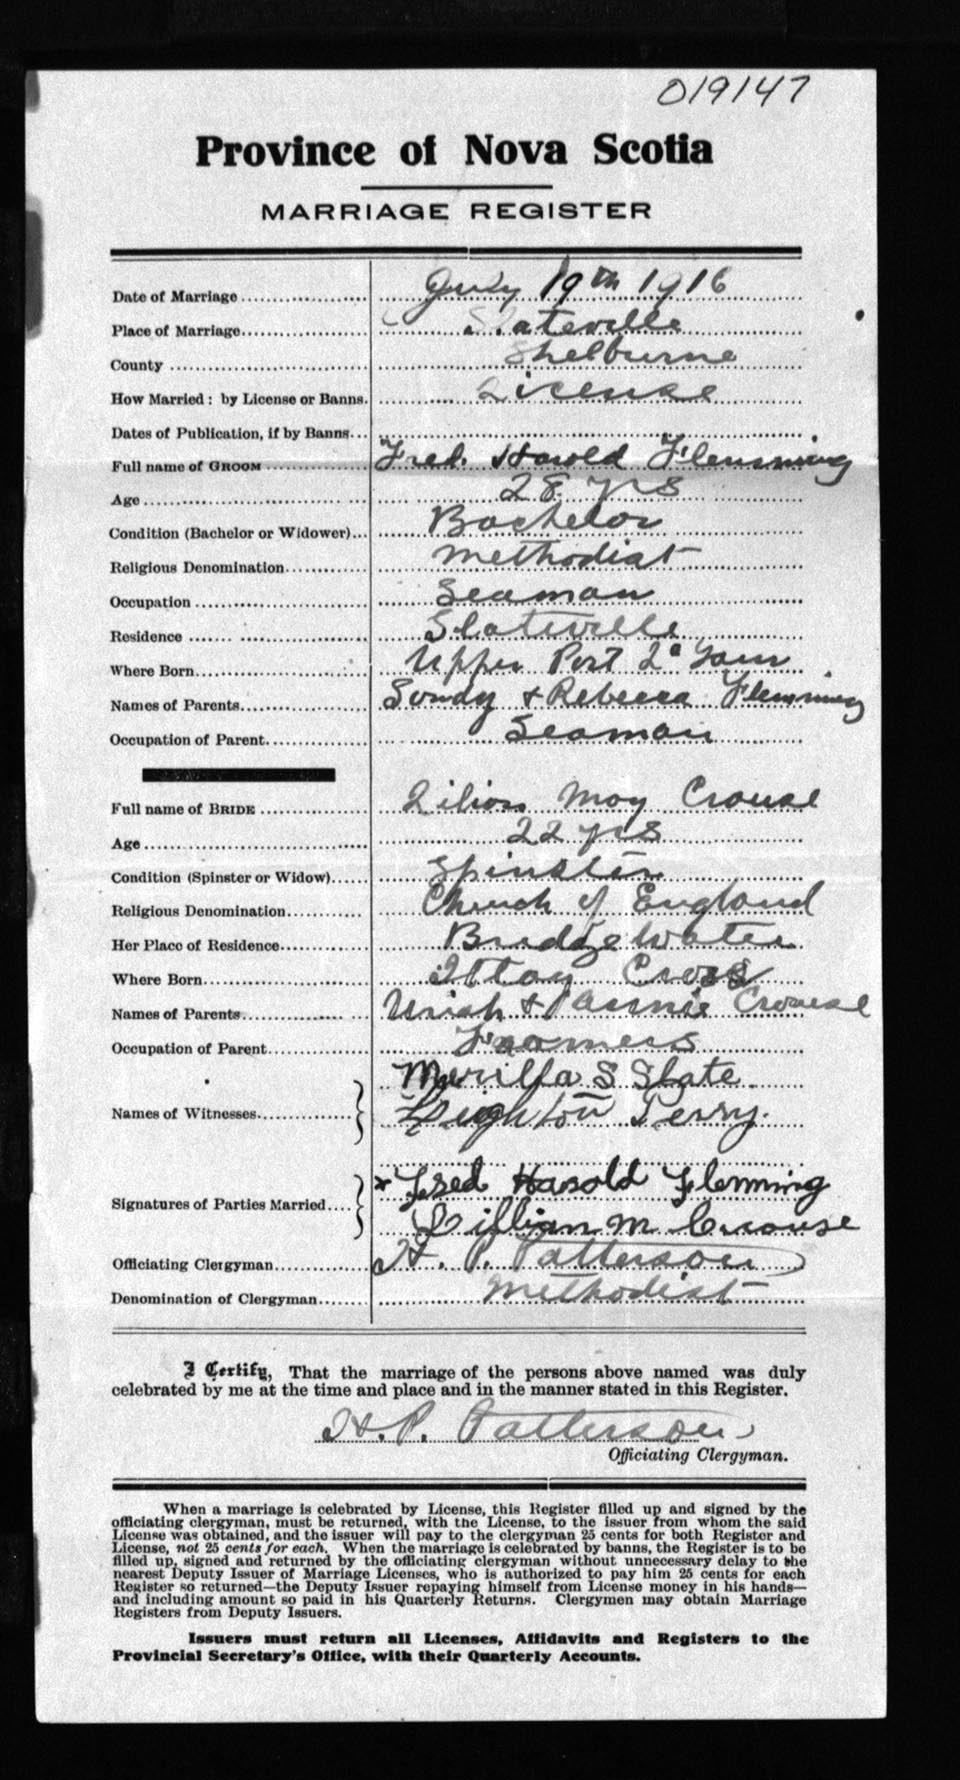 019147
Province of Nova Scotia
MARRIAGE REGISTER
Date of Marriage July 19th 1916
Place of Marriage Slateville
County Shelburne
How Married: by License or Banns. License
Dates of Publication, if by Banns
Full name of GROOM Fred. Harold Flemming
Age 28 yrs
Condition (Bachelor or Widower) Bachelor
Religious Denomination Methodist
Occupation Seaman
Residence Slateville
Where Born Upper Port La Tour
Names of Parents & Rebecca Flemming
Occupation of Parent Seaman
Full name of BRIDE Lilian May Crouse
Age 22 yrs
Condition (Spinster or Widow) Spinster
Religious Denomination Church of England
Her Place of Residence Bridgewater
Where Born Italy Cross
Names of Parents Uriah & Crouse
Occupation of Parent Farmers
S Slate
Names of Witnesses Leighton Perry.
Signatures of Parties Married Fred Harold Flemming
Lillian M Crouse
Officiating Clergyman H. P. Patterson
Denomination of Clergyman Methodist
I Certify, That the marriage of the persons above named was duly
celebrated by me at the time and place and in the manner stated in this Register.
H. P. Patterson
Officiating Clergyman.
When a marriage is celebrated by License, this Register filled up and signed by the
officiating clergyman, must be returned, with the License, to the issuer from whom the said
License was obtained, and the issuer will pay to the clergyman 25 cents for both Register and
License, not 25 cents for each. When the marriage is celebrated by banns, the Register is to be
filled up, signed and returned by the officiating clergyman without unnecessary delay to the
nearest Deputy Issuer of Marriage Licenses, who is authorized to pay him 25 cents for each
Register so returned—the Deputy Issuer repaying himself from License money in his hands—
and including amount so paid in his Quarterly Returns. Clergymen may obtain Marriage
Registers from Deputy Issuers.
Issuers must return all Licenses, Affidavits and Registers to the
Provincial Secretary's Office, with their Quarterly Accounts.